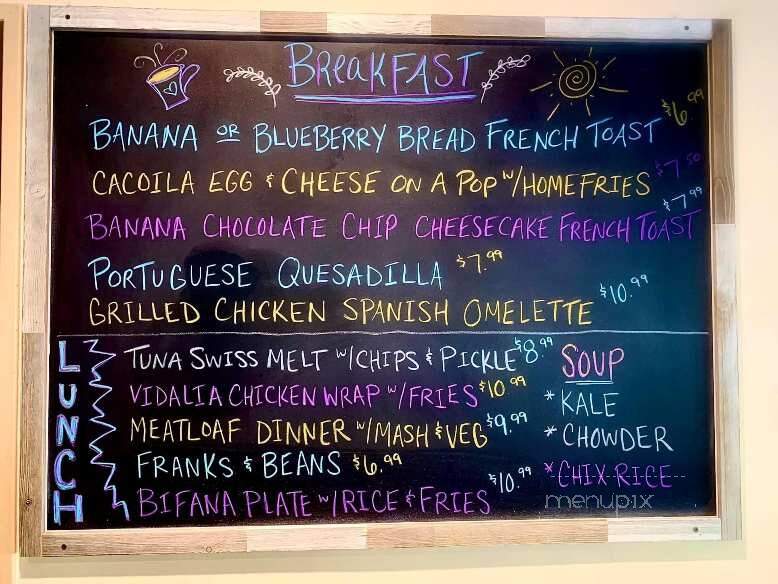 BREAKFAST
BANANA OR BLUEBERRY BREAD FRENCH TOAST $6.99
CACOILA EGG & CHEESE ON A POP W/HOMEFRIES $7.50
BANANA CHOCOLATE CHIP CHEESECAKE FRENCH TOAST $7.99
PORTUGUESE QUESADILLA $7.99
GRILLED CHICKEN SPANISH OMELETTE $10.99
LUNCH
TUNA SWISS MELT W/CHIPS & PICKLE $8.99
VIDALIA CHICKEN WRAP W/FRIES $10.99
MEATLOAF DINNER W/MASH & VEG $9.99
FRANKS & BEANS $6.99
BIFANA PLATE W/RICE & FRIES $10.99
SOUP
*KALE
*CHOWDER
*CHIX RICE
menupix